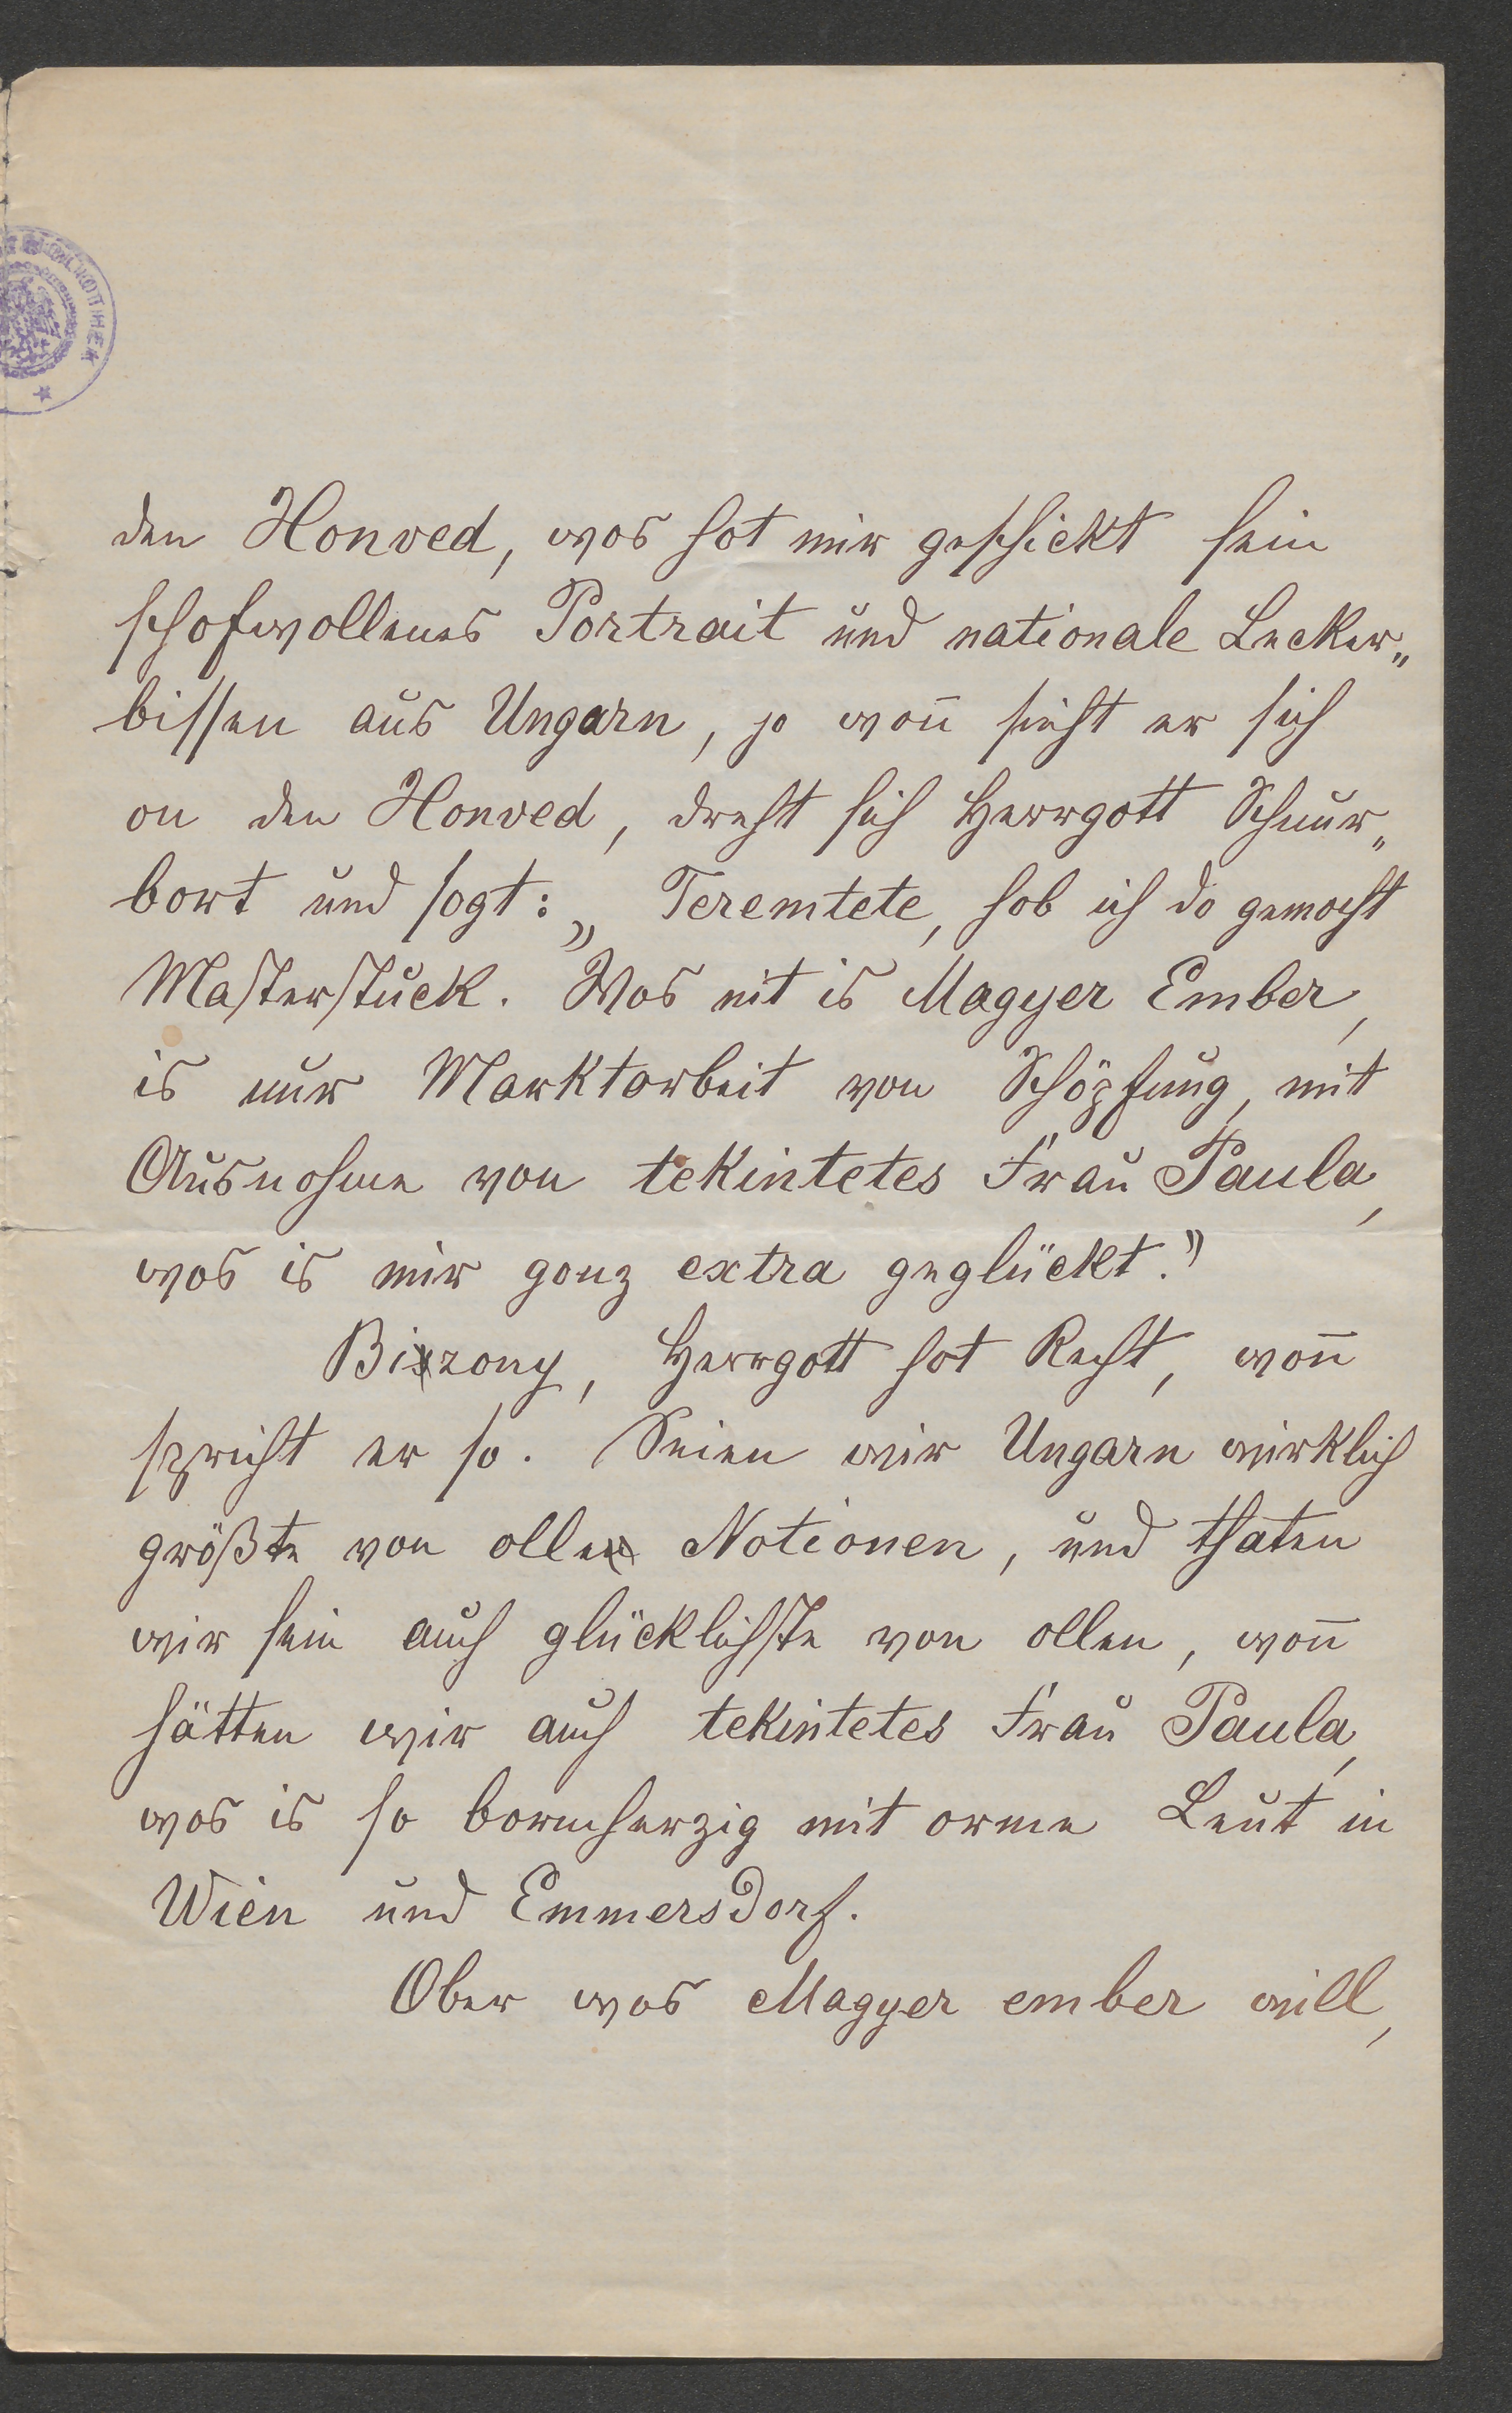 BIBLIOTHEK
den Honved, wos hot mir geschickt sein
schofwollenes Portrait und nationale Lecker„
bissen aus Ungarn, jo woñ sieht er sich
on den Honved, dreht sich Herrgott Schnur„
bort und sogt: „Teremtete, hob ich do gemocht
Masterstuck. Wos nit is Magyer Ember,
is nur Marktorbeit von Schöpfung, mit
Ausnohme von tekintetes Frau Paula,
wos is mir gonz extra geglückt.”
Bizony, Herrgott hot Recht, woñ
spricht er so. Seien wir Ungarn wirklich
größte von olle Notionen, und thaten
wir sein auch glücklichste von ollen, woñ
hätten wir auch tekintetes Frau Paula,
wos is so bormherzig mit orme Leut in
Wien und Emmersdorf.
Ober wos Magyer ember will,